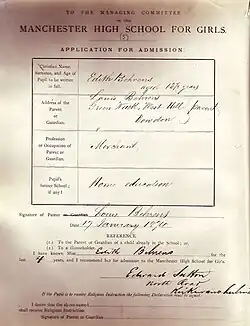 TO THE MANAGING COMMITTEE
OF THE
MANCHESTER HIGH SCHOOL FOR GIRLS.
APPLICATION FOR ADMISSION
Christian Name, Surname, and Age of Pupil to be written in full.
Edith Behrens
aged 13½ years
Address of the Parent or Guardian.
Louis Behrens
West Hill parent
Bowdon
Profession or Occupation of Parent or Guardian.
Merchant
Pupil's former School; if any!
Home education
Signature of Parent or Guardian Louis Behrens
Date 17 January 1874
REFERENCE.
(1.) To the Parent or Guardian of a child already in the School; or,
(2.) To a Householder.
I have known Miss Edith Behrens for the
last 4 years, and I recommend her for admission to the Manchester High School for Girls.
Edward Sutton
North
If the Pupil is to receive Religious Instruction the following Declaration must be signed.
I desire that the above-named
shall receive Religious Instruction.
Signature of Parent or Guardian